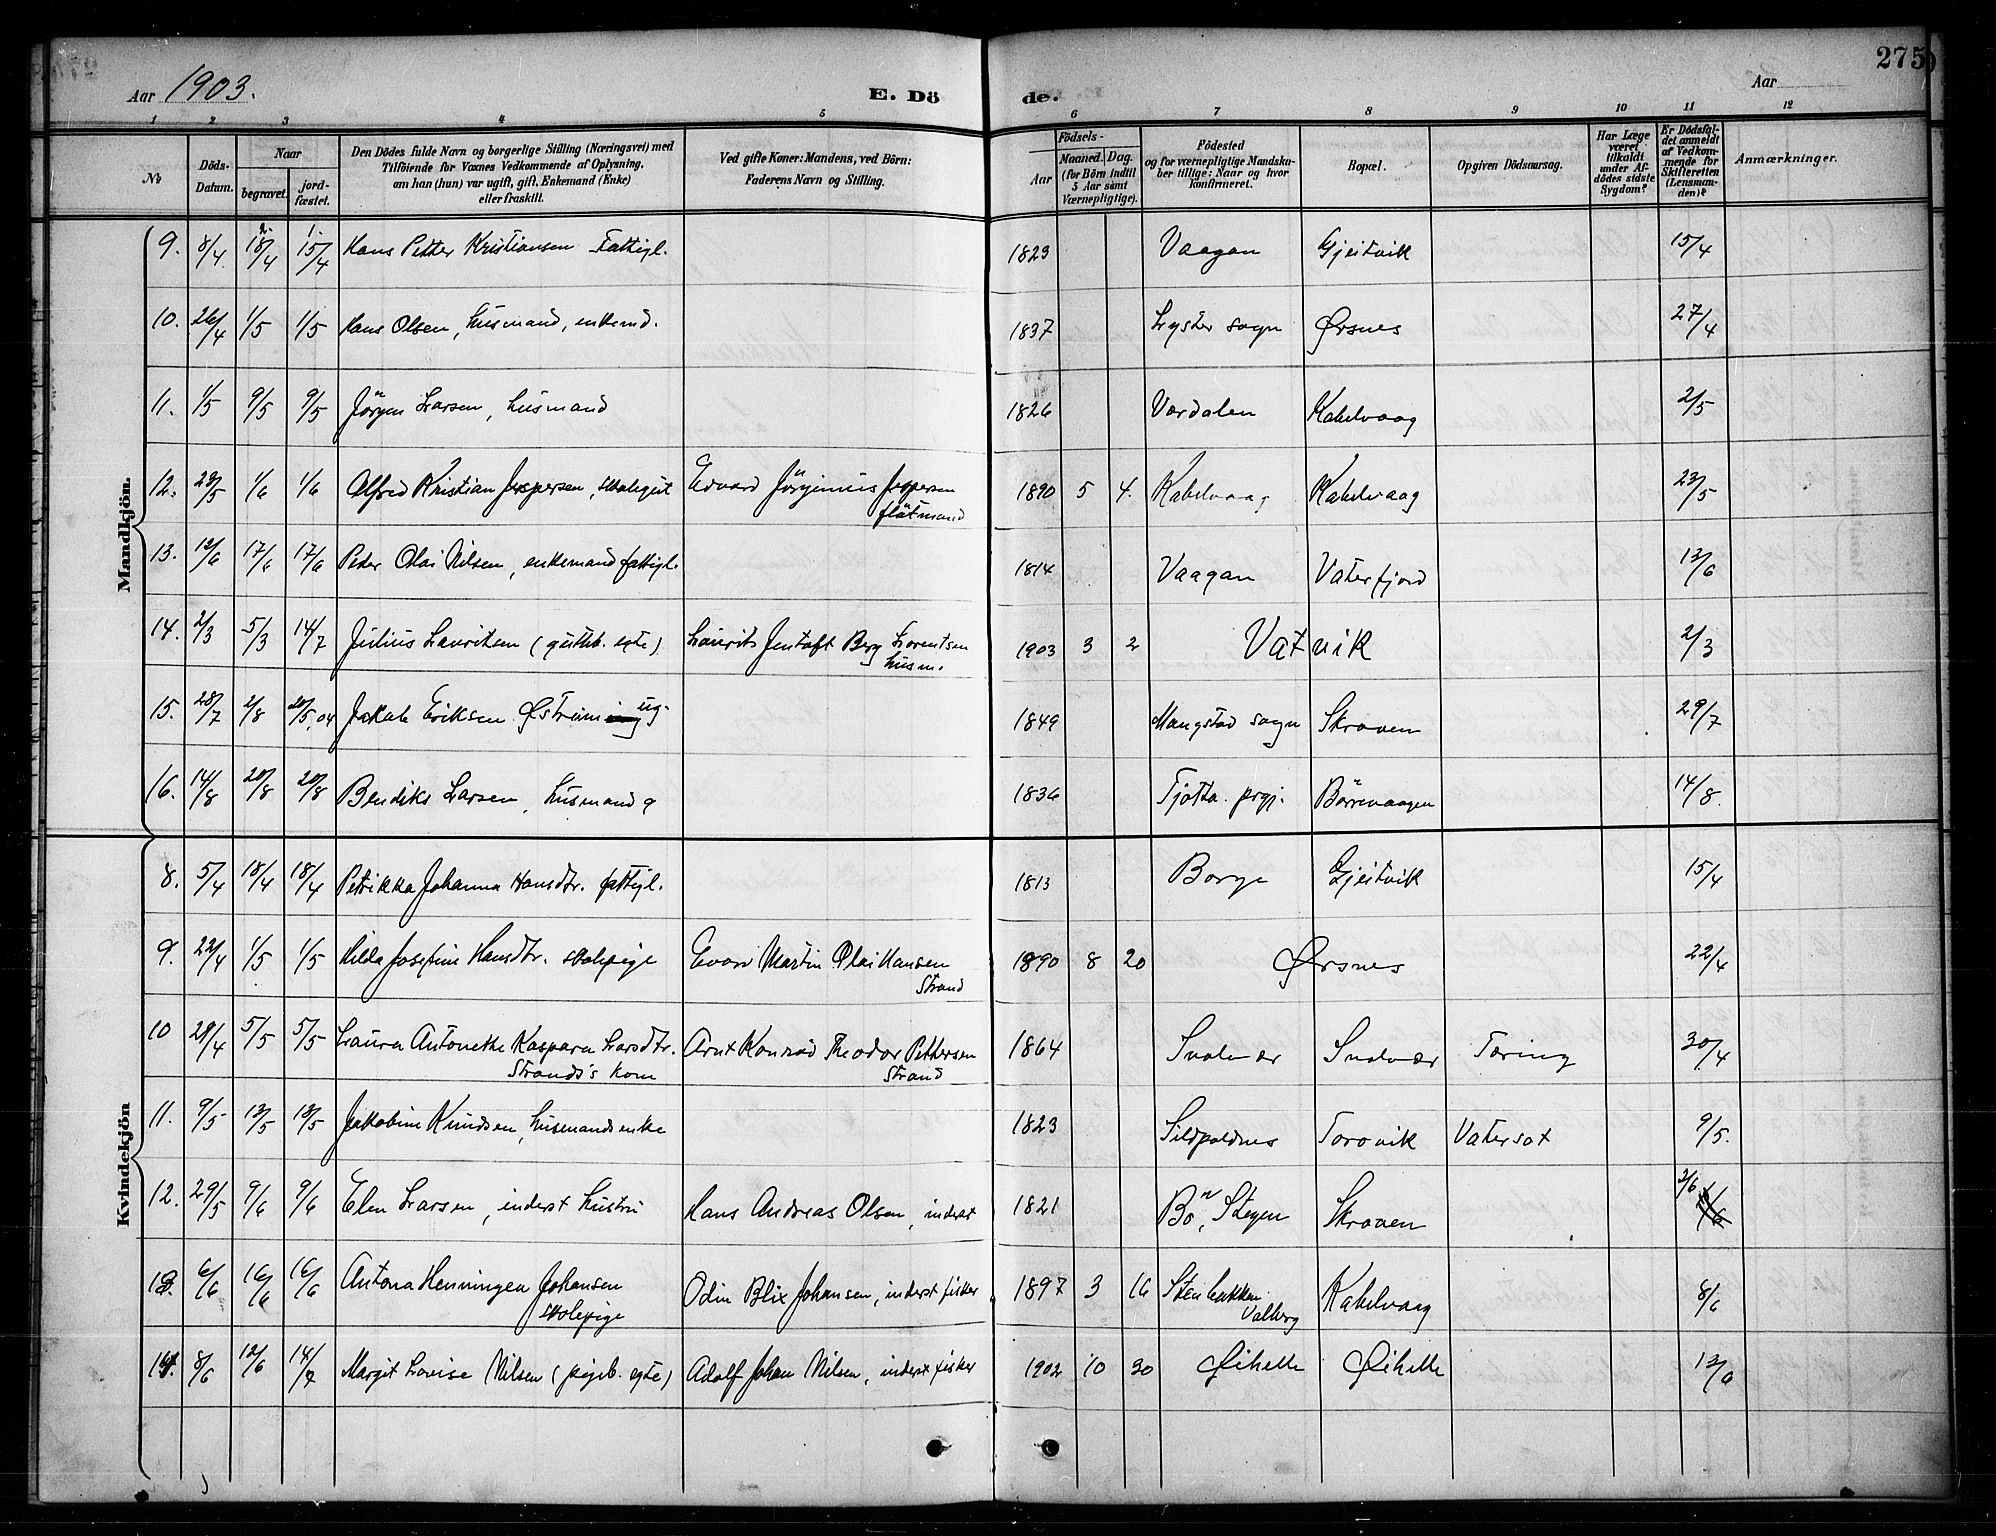 275
Aar 1903.
E. Dö
de.
Aar
1 2 3 4 5 6 7 8 9 10 11 12
№
Döds-Datum.
Naar
begravet.
jord-fæstet.
Den Dödes fulde Navn og borgerlige Stilling (Næringsvei) med
Tilföiende for Voxnes Vedkommende af Oplysning,
om han (hun) var ugift, gift, Enkemand (Enke)
eller fraskilt.
Ved gifte Koner: Mandens, ved Börn:
Faderens Navn og Stilling.
Födsels-
Aar
Maaned. Dag.
(for Börn indtil
5 Aar samt
Værnepligtige).
Födested
og for værnepligtige Mandska-
ber tillige: Naar og hvor
konfirmeret.
Bopæl.
Opgiven Dödsaarsag.
Har Læge
været
tilkaldt
under Af-
dödes sidste
Sygdom?
Er Dödsfal-
det anmeldt
af Vedkom-
mende for
Skifteretten
(Lensman-
den)?
Anmærkninger.
Mandkjön.
9. 8/4 18/4 15/4 Hans Petter Kristiansen Fattigl. 1823 Vaagan Gjeitvik 15/4
10. 26/4 1/5 1/5 Hans Olsen, husmand, enkemd. 1837 Lyster sogn Ørsnes 27/4
11. 1/5 9/5 9/5 Jörgen Larsen, husmand 1826 Værdalen Kabelvaag 2/5
12. 23/5 1/6 1/6 Alfred Kristian Jespersen, skolegut Edvard Jörginius Jespersen 1890 5 4. Kabelvaag Kabelvaag 23/5
flåtmand
13. 12/6 17/6 17/6 Peder Olai Nilsen, enkemand fattigl. 1814 Vaagan Vaterfjord 13/6
14. 2/3 5/3 14/7 Julius Lauritsen (guttb. egte) Laurits Jentoft Berg Lorentsen 1903 3 2 Vatvik 2/3
husm.
15. 28/7 2/8 20/5,04 Jakob Eriksen Østrem ug. 1849 Mangstad sogn Skroven 29/7
16. 14/8 20/8 20/8 Bendiks Larsen, husmand g 1836 Tjøtta prgj. Börrevaagen 14/8.
Kvindekjön
8. 5/4 18/4 18/4 Petrikka Johanna Hansdtr. fattigl. 1813 Borge Gjeitvik 15/4
9. 22/4 1/5 1/5 Hilda Josefine Hansdtr. skolepige Evard Martin Olai Hansen 1890 8 20 Ørsnes 22/4
Strand
10 29/4 5/5 5/5 Laura Antonette Kaspara Larsdtr. Arnt Konrad Theodor Pettersen 1864 Svolvær Svolvær Tæring 30/4
Strands's kone Strand
11. 9/5 13/5 13/5 Jakobine Knudsen, husmandsenke 1823 Sildpoldnes Torovik Vatersot 9/5.
12. 29/5 9/6 9/6 Elen Larsen, inderst hustru Hans Andreas Olsen, inderst 1821 Bö, Stegen Skroven 2/6
13. 6/6 16/6 16/6 Antona Henningea Johansen Odin Blix Johansen, inderst fisker 1897 3 16 Stenbakken Kabelvaag 8/6
skolepige Valberg
14. 8/6 12/6 14/7 Margit Lovise Nilsen (pigeb. egte) Adolf Johan Nilsen, inderst fisker 1902 10 30 Øihelle Øihelle 13/6